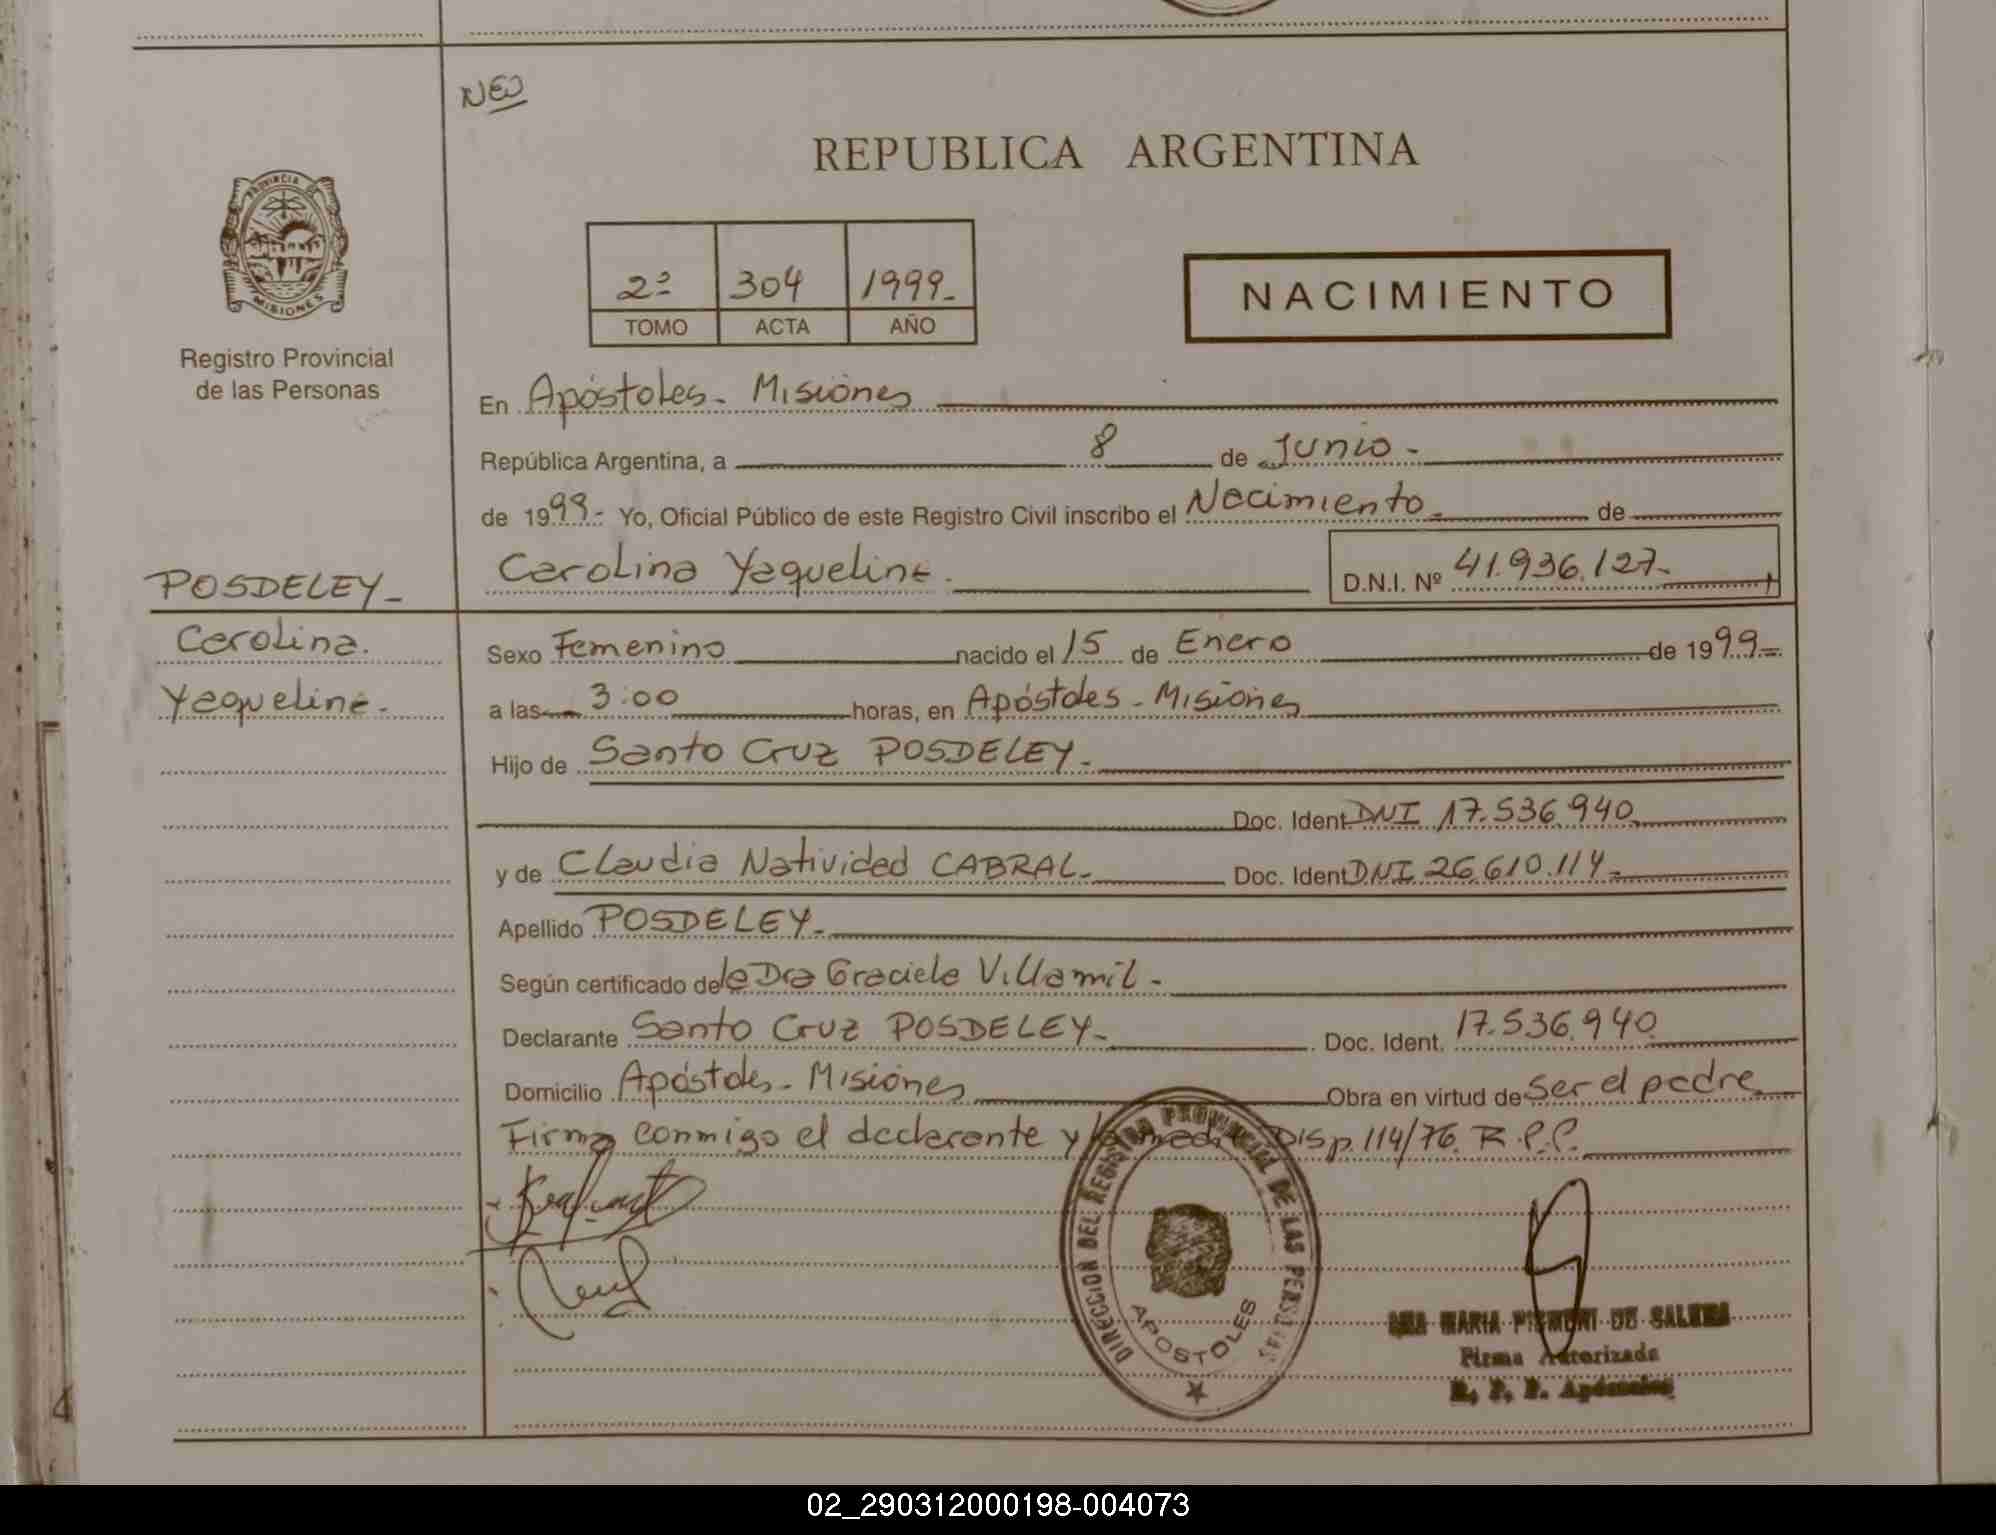 NEO
REPUBLICA ARGENTINA
PROVINCIA DE
MISIONES
Registro Provincial
de las Personas
2º 304 1999-
TOMO ACTA AÑO
NACIMIENTO
En Apóstoles - Misiones
República Argentina, a 8 de Junio -
de 1999- Yo, Oficial Público de este Registro Civil inscribo el Nacimiento de
Carolina Yaqueline. D.N.I. Nº 41.936.127-
POSDELEY-
Carolina.
Yaqueline-
Sexo Femenino nacido el 15 de Enero de 1999-
a las 3:00 horas, en Apóstoles - Misiones
Hijo de Santo Cruz POSDELEY-
Doc. Ident DNI 17.536.940
y de Claudia Natividad CABRAL- Doc. Ident DNI 26.610.114-
Apellido POSDELEY-
Según certificado de la Dra Graciela Villamil-
Declarante Santo Cruz POSDELEY- Doc. Ident. 17.536.940
Domicilio Apóstoles - Misiones Obra en virtud de ser el padre
Firma conmigo el declarante y Disp. 114/76. R.P.P.
DIRECCION DEL REGISTRO PROVINCIAL DE LAS PERSONAS
APOSTOLES
ANA MARIA DE
Firma Autorizada
R. P. P. Apóstoles
02_290312000198-004073